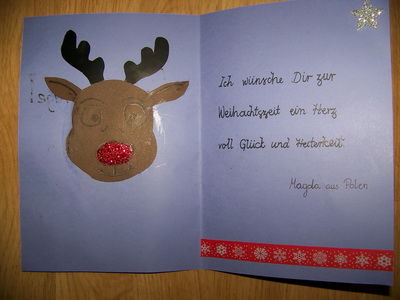 Ich wünsche Dir zur
Weihachtszeit ein Herz
voll Glück und Heiterkeit.
Magda aus Polen